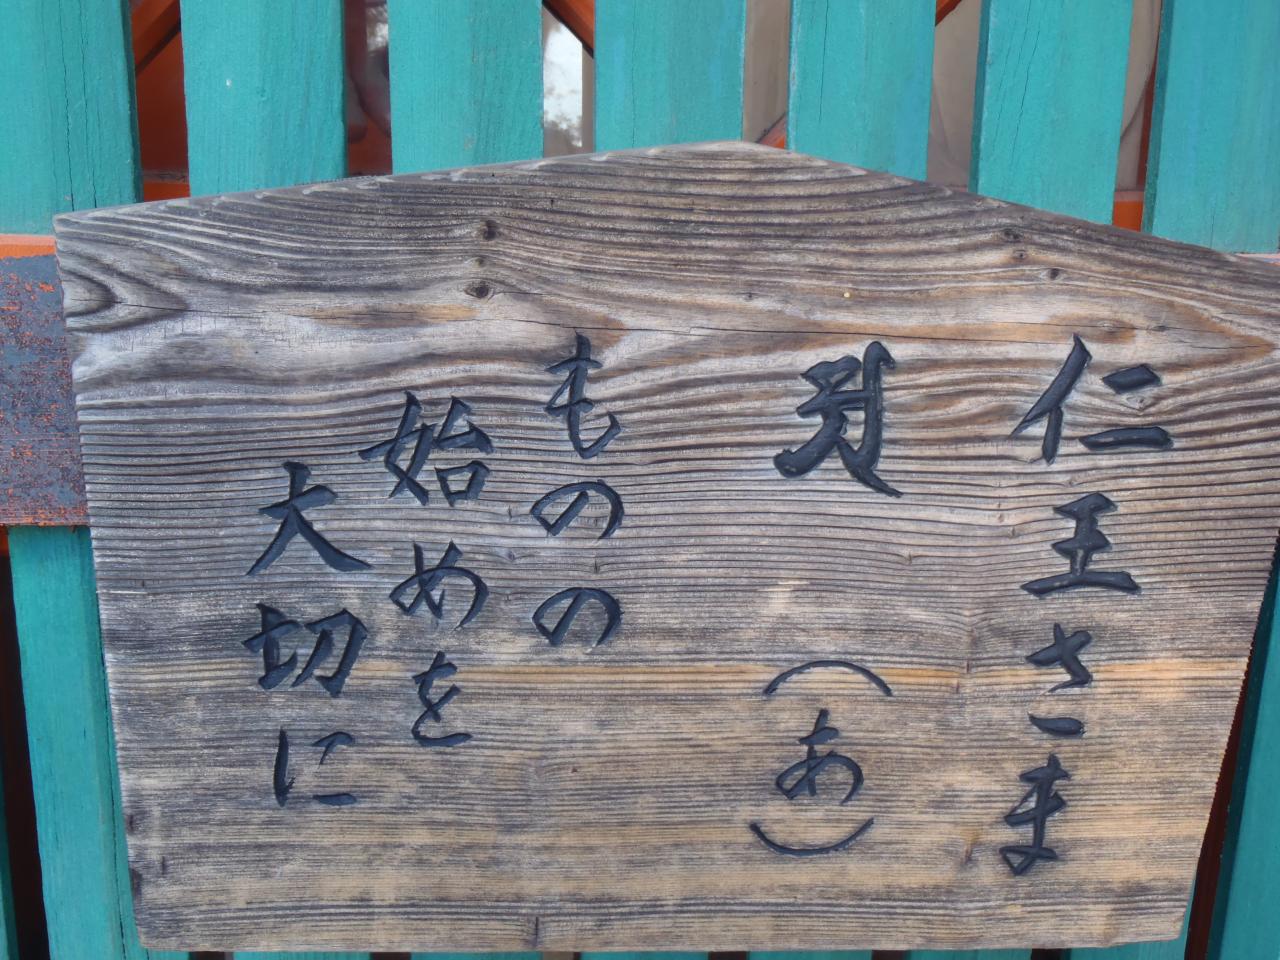 仁王さま
अ（あ）
ものの
始めを
大切に